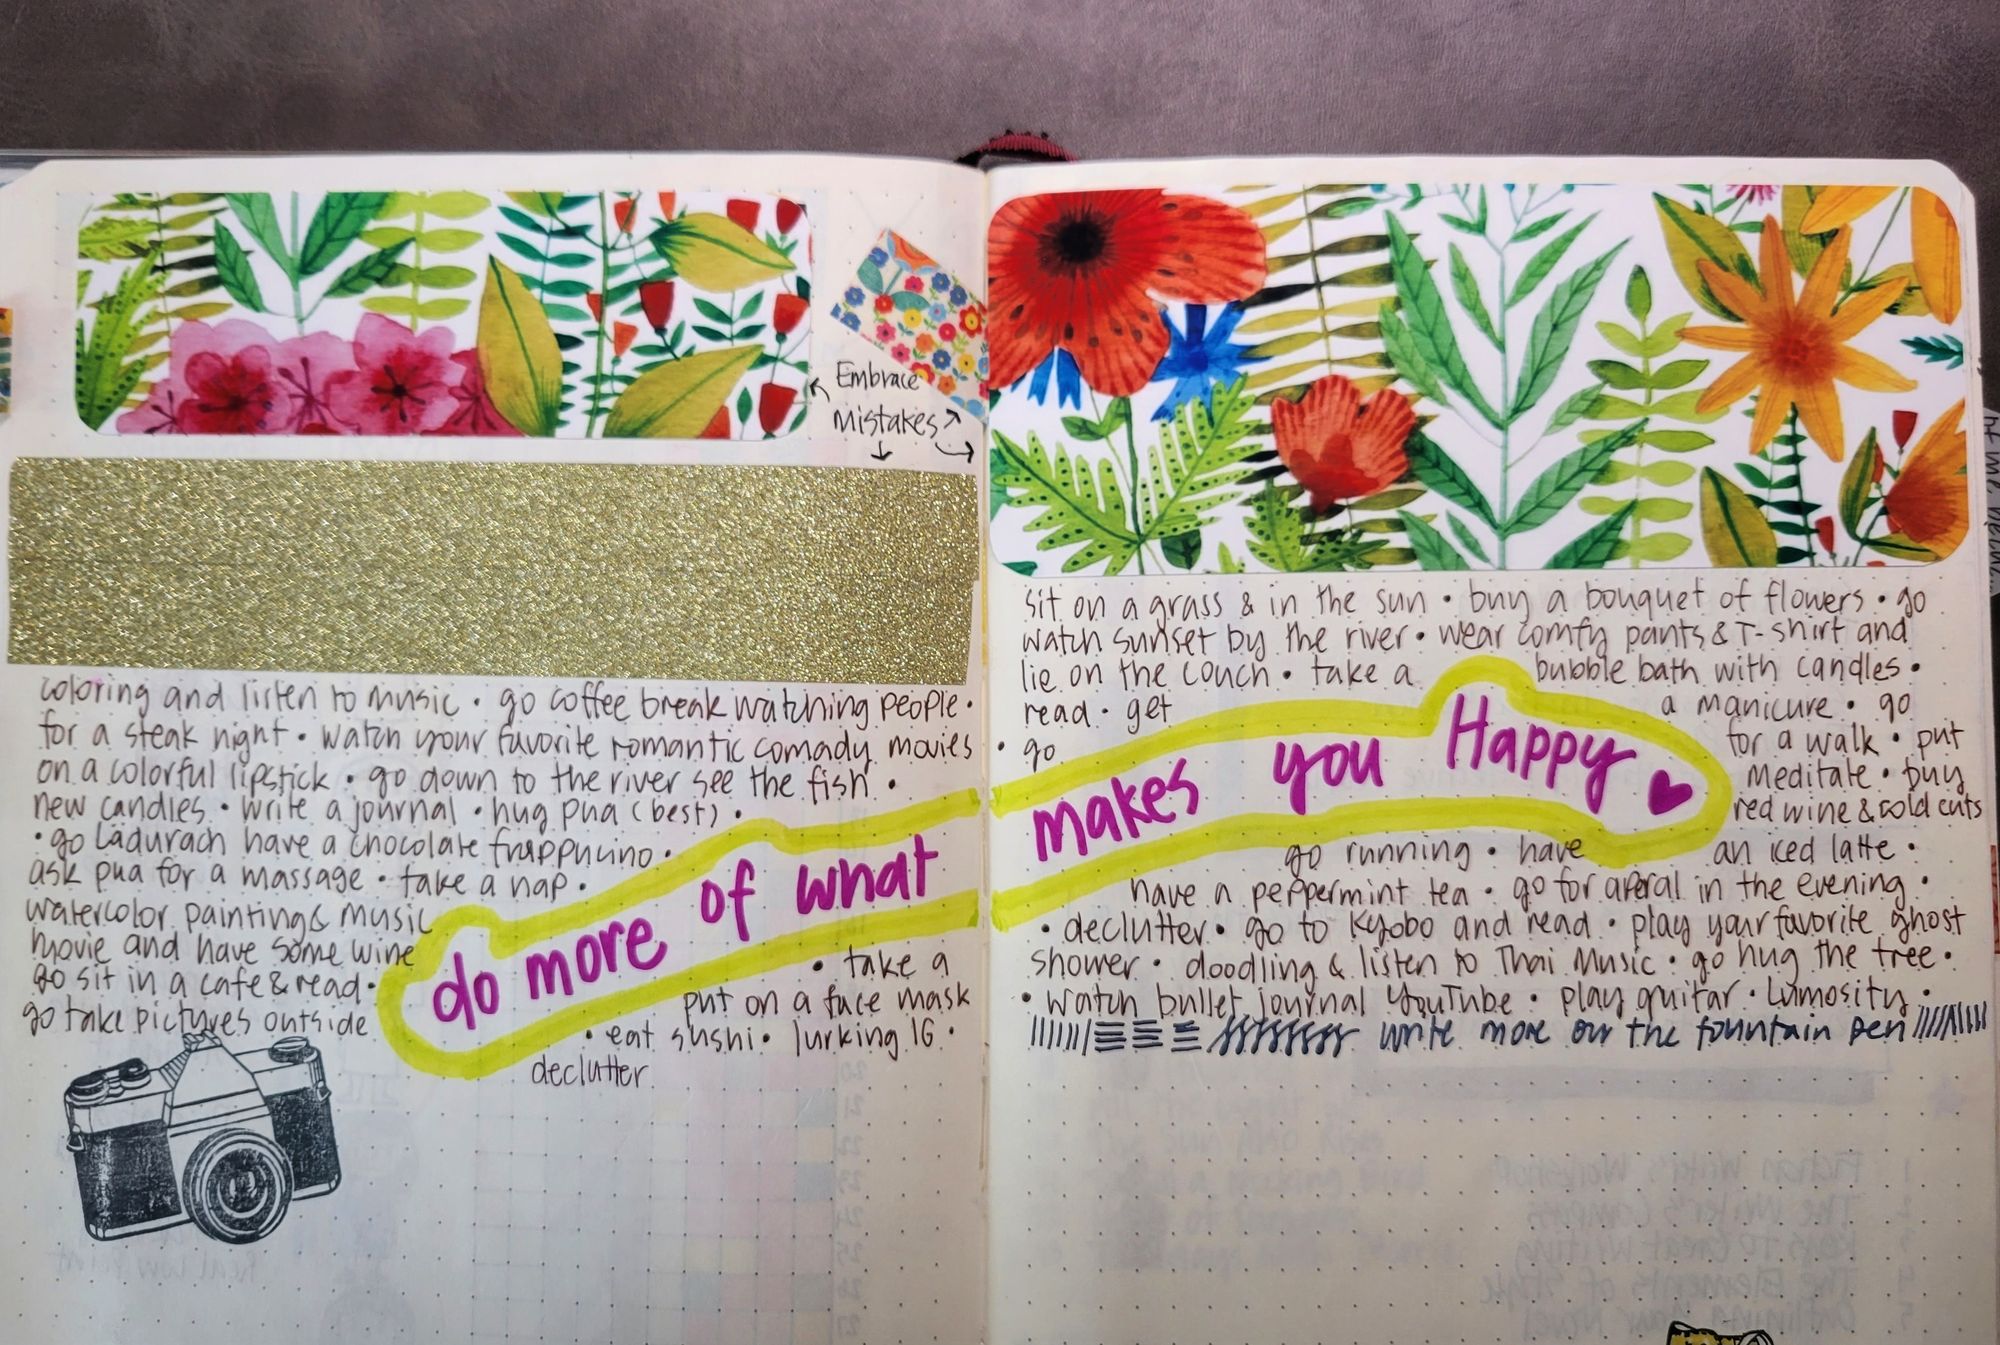 Embrace
Mistakes
coloring and listen to music • go coffee break watching people •
for a steak night • watch your favorite romantic comady movies
on a colorful lipstick • go down to the river see the fish •
new candles • write a journal • hug pua (best) •
• go Ladurach have a chocolate frappucino •
ask pua for a massage • take a nap •
watercolor painting & music
movie and have some wine
go sit in a cafe & read •
go take pictures outside
do more of what
• take a
put on a face mask
• eat sushi • lurking IG •
declutter
sit on a grass & in the sun • buy a bouquet of flowers • go
watch sunset by the river • wear comfy pants & T-shirt and
lie on the couch • take a bubble bath with candles •
read • get a manicure • go
• go for a walk • put
meditate • buy
red wine & cold cuts
makes you Happy
go running • have an iced latte •
have a peppermint tea • go for aperal in the evening •
• declutter • go to Kyobo and read • play your favorite ghost
shower • doodling & listen to Thai Music • go hug the tree •
• watch bullet journal YouTube • play guitar • Lumosity •
write more on the fountain pen
Fiction Writer's Workshop
The Writer's Compass
Keys to Great Writing
The Elements of Style
Outlining Your Novel